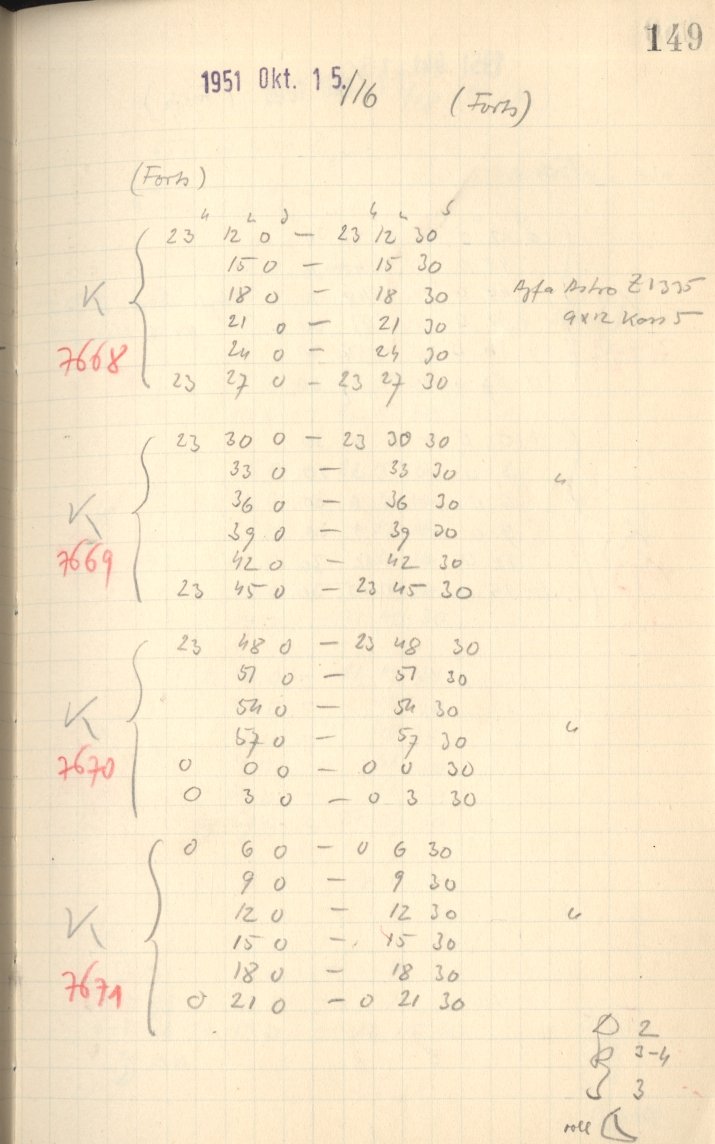 149
1951 Okt. 15./16 (Forts)
(Forts)
h m s h m s
23 12 0 — 23 12 30
15 0 — 15 30
K 18 0 — 18 30 Agfa Astro Z1335
21 0 — 21 30 9x12 Kass 5
7668 24 0 — 24 30
23 27 0 — 23 27 30
23 30 0 — 23 30 30
33 0 — 33 30 "
K 36 0 — 36 30
39 0 — 39 30
7669 42 0 — 42 30
23 45 0 — 23 45 30
23 48 0 — 23 48 30
51 0 — 51 30
K 54 0 — 54 30
57 0 — 57 30 "
7670 0 0 0 — 0 0 30
0 3 0 — 0 3 30
0 6 0 — 0 6 30
9 0 — 9 30
K 12 0 — 12 30 "
15 0 — 15 30
7671 18 0 — 18 30
0 21 0 — 0 21 30
D 2
R 3-4
S 3